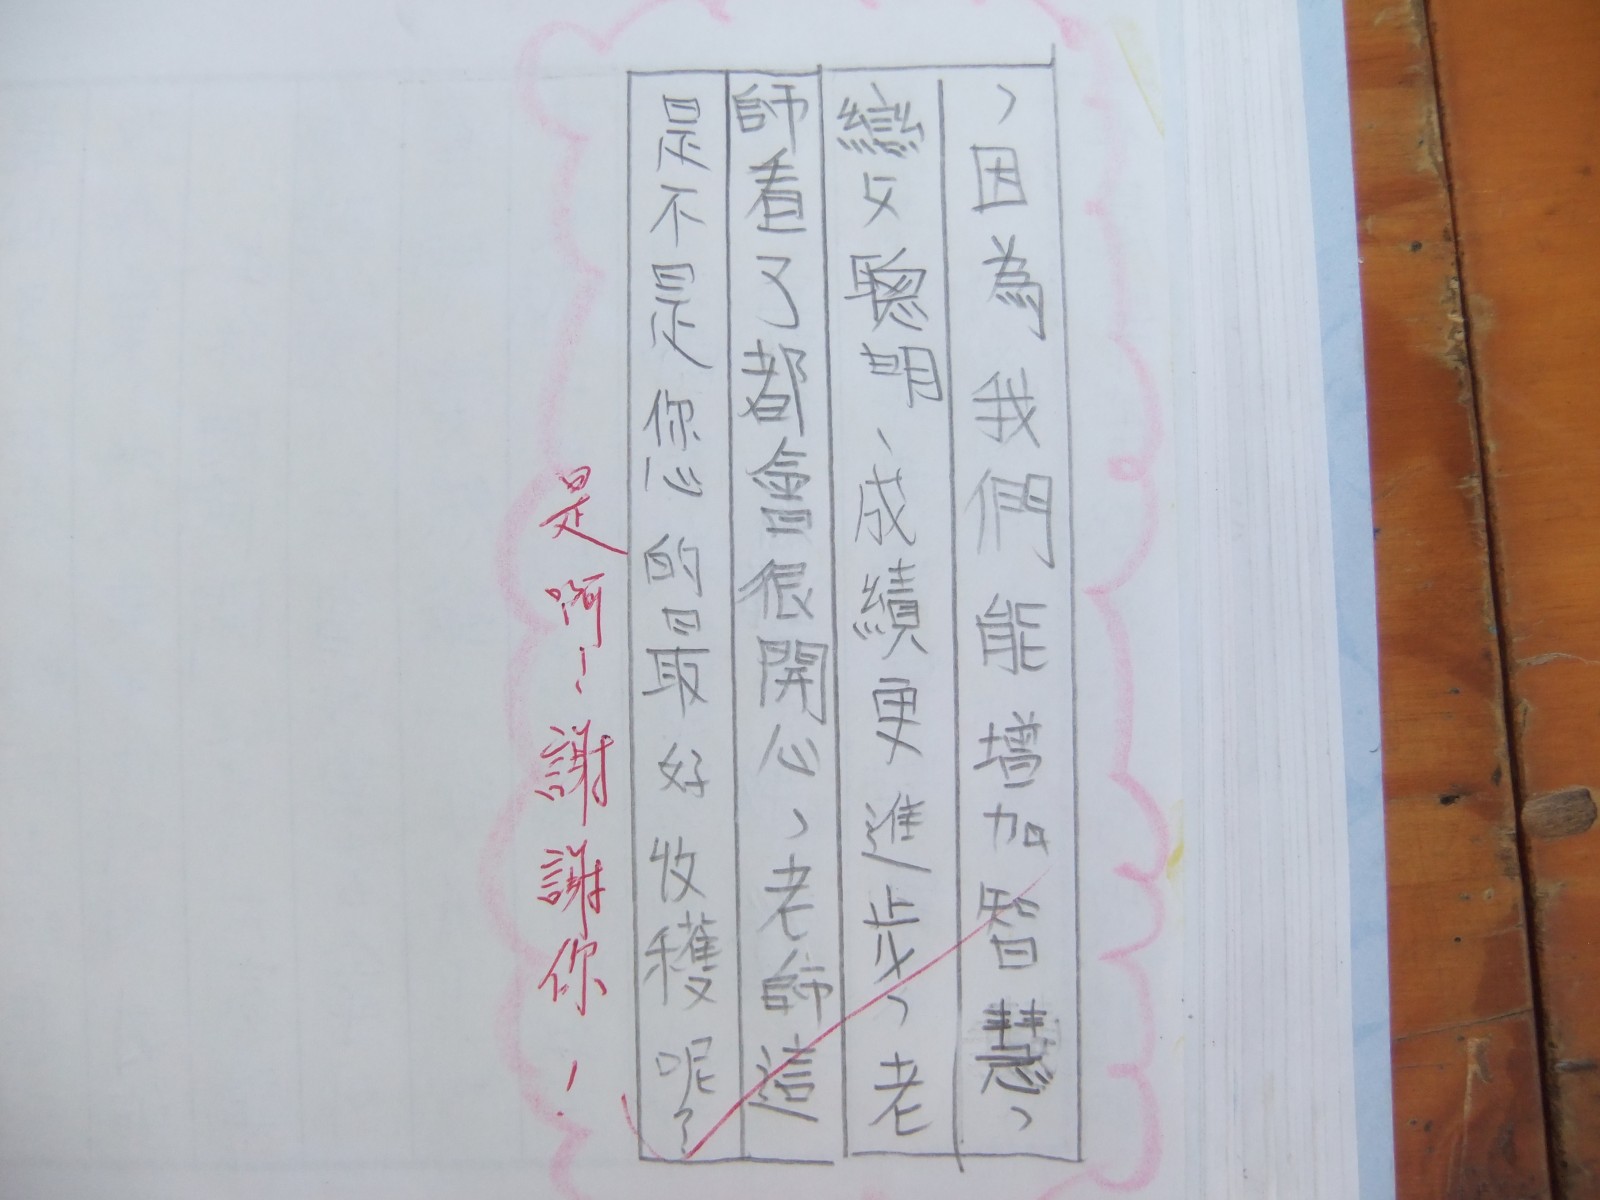 ，因為我們能增加智慧，
變聰明、成績更進步，老
師看了都會很開心，老師這
是不是你心的最好收穫呢？
是啊！謝謝你！